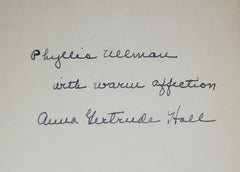 Phyllis Ullman
with warm affection
Anna Gertrude Hall